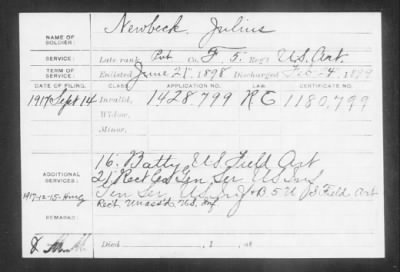 NAME OF SOLDIER: Newbeck, Julius
SERVICE: Late rank, Pvt Co. F, 5 Reg't U.S. Art.
TERM OF SERVICE: Enlisted June 21, 1898 Discharged Feb-4, 1899
DATE OF FILING. CLASS. APPLICATION NO. LAW. CERTIFICATE NO.
1917 Sept 14 Invalid, 1428,799 RG 1180,799
Widow,
Minor,
ADDITIONAL SERVICES: 16. Batty U.S. Field Art
21 Rect Gen Ser. U.S. Inf
1917-12-15- Gen Ser. U.S. Inf & B 5 U.S. Field Art
REMARKS: Rect. Unass'd. U.S. Inf
Died , 1 , at